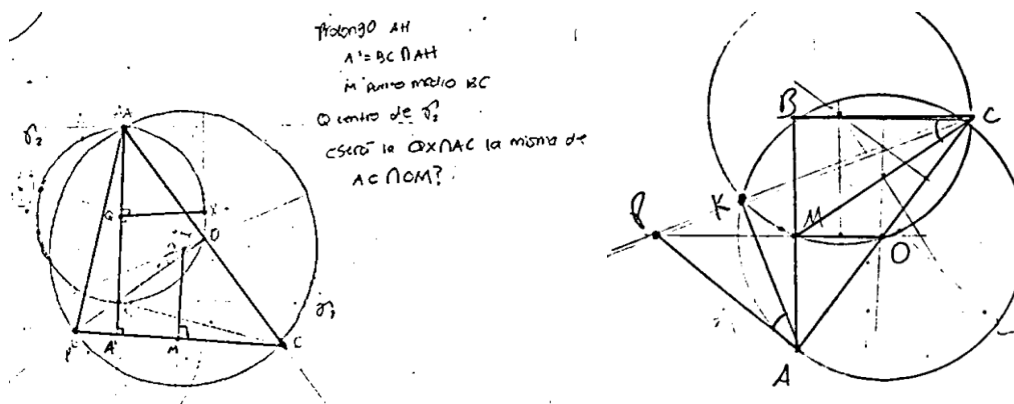 Prolongo AH
A' = BC ∩ AH
M punto medio BC
Q centro de γ₂
¿será la QX ∩ AC la misma de
AC ∩ OM?
A
γ₂
Q
X
O
γ₁
A'
M
C
B
C
K
P
M
O
A